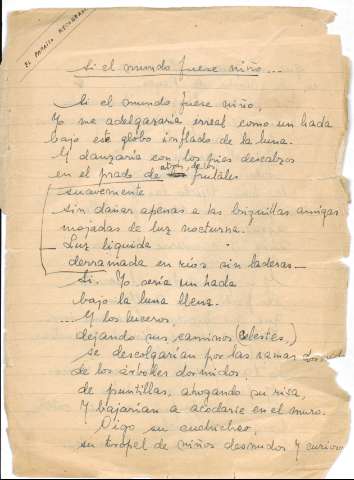 EL PARAISO RECOBRADO
Si el mundo fuese niño...
Si el mundo fuese niño,
Yo me adelgazaría irreal como un hada
bajo este globo inflado de la luna.
Y danzaría con los pies descalzos
en el prado de atrás, de los frutales
suavemente
sin dañar apenas a las briznillas amigas
mojadas de luz nocturna.
Luz líquida
derramada en ríos sin laderas—
Sí. Yo sería un hada
bajo la luna llena.
....Y los luceros,
dejando sus caminos (celestes,)
se descolgarían por las ramas
de los árboles dormidos,
de puntillas, ahogando su risa,
Y bajarían a acodarse en el muro.
Oigo su cuchicheo,
su tropel de niños desnudos y curiosos